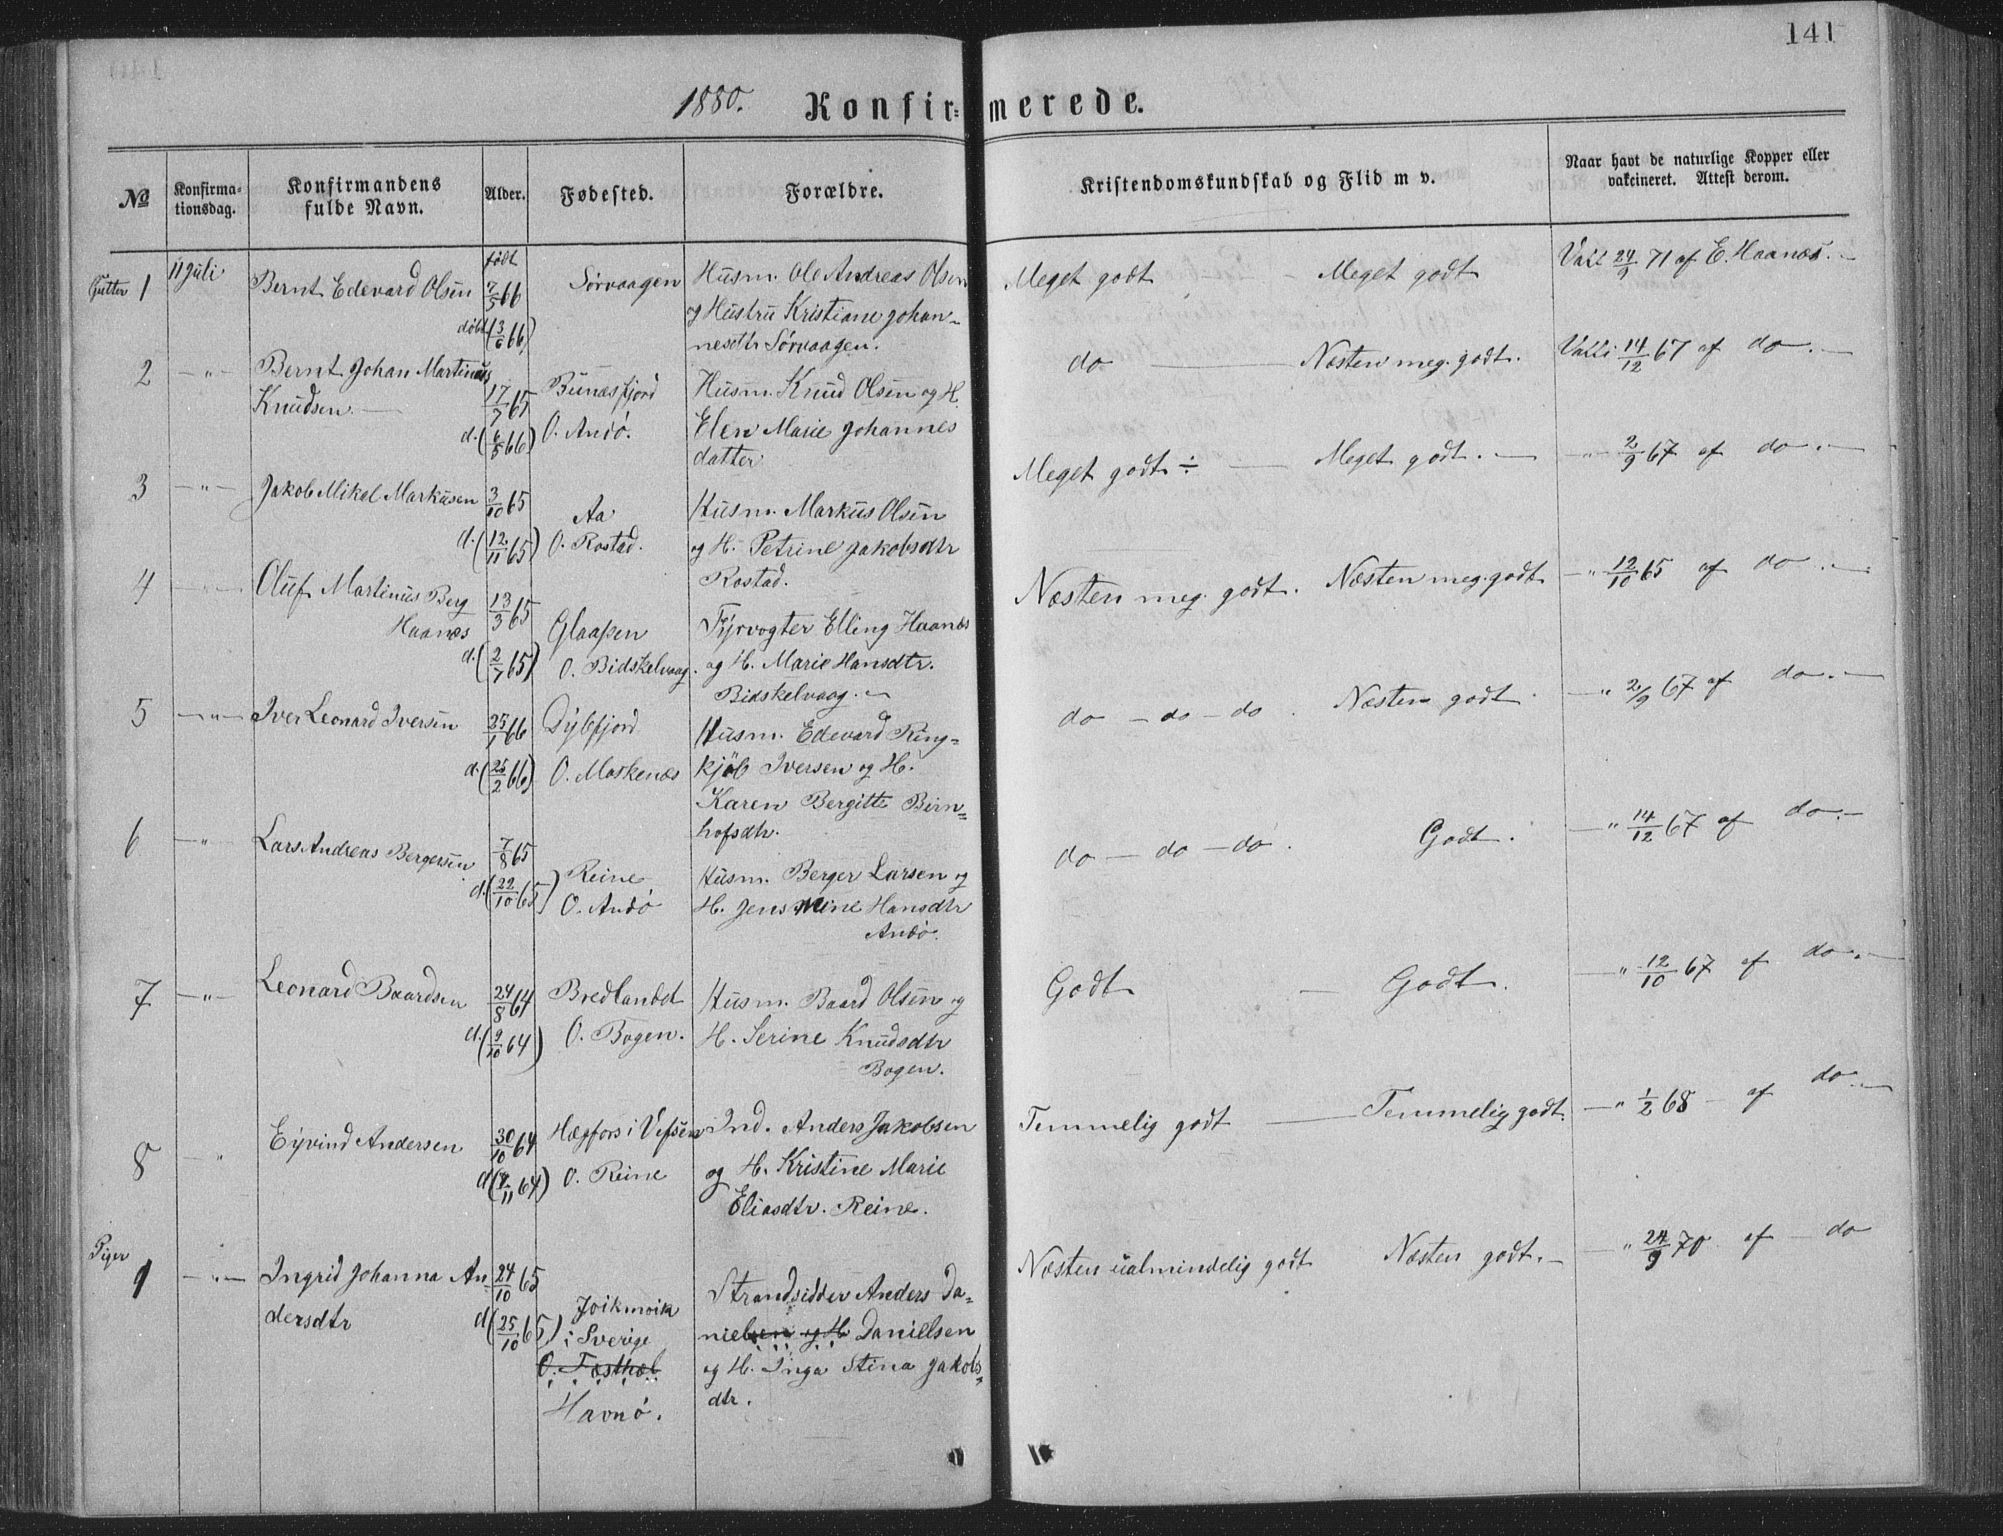 141
1880. Konfirmerede.
No
Konfirma-
tionsdag.
Konfirmandens
fulde Navn.
Alder.
Fødested.
Forældre.
Kristendomskundskab og Flid m v.
Naar havt de naturlige Kopper eller
vakcineret. Attest derom.
Gutter 1
11 Juli
Bernt Edevard Olsen
født
7/5 66
døbt (13/6 66)
Sørvaagen
Husm. Ole Andreas Olsen
og Hustru Kristiane Johan-
nesdtr Sørvaagen.
Meget godt - Meget godt
Vacc 24/9 71 af E. Haanæs. -
2 -"-
Bernt Johan Martinus
Knudsen. -
17/7 65
d. (6/5 66)
Bunæsfjord
O. Andø.
Husm. Knud Olsen og H.
Elen Marie Johannes
datter
do - Næsten meg. godt.
Vacc. 14/12 67 af do. -
3 -"-
Jakob Mikel Markusen
3/10 65
d. (12/11 65)
Aa
O. Rostad.
Husm. Markus Olsen
og H. Petrine Jakobsdtr
Rostad.
Meget godt ÷ - Meget godt. -
-"- 2/9 67 af do. -
4 -"-
Oluf Martinus Berg
Haanæs
13/3 65
d. (2/7 65)
Glaapen
O. Bidskelvaag.
Fyrvogter Elling Haanæs
og H. Marie Hansdtr.
Bidskelvaag. -
Næsten meg. godt. Næsten meg. godt
-" 12/10 65 af do. -
5 -"-
Iver Leonard Iversen
25/1 66
d. (25/2 66)
Dybfjord
O. Moskenæs
Husm. Edevard Ring-
kjøb Iversen og H.
Karen Bergitte Bern-
hofsdtr.
do - do - do. Næsten godt
-" 2/9 67 af do. -
6 -"-
Lars Andreas Bergersen
7/8 65
d. (22/10 65)
Reine
O. Andø
Husm. Berger Larsen og
H. Jensmine Hansdtr
Andø.
do - do - do. Godt.
-" 14/12 67 af do. -
7 -"-
Leonard Baardsen
24/8 64
d. (9/10 64)
Bredlandet
O. Bogen.
Husm. Baard Olsen og
H. Serine Knudsdtr
Bogen.
Godt - Godt.
-" 12/10 67 af do. -
8 "
Eyvind Andersen
30/10 64
d (/11 64)
Hægfors i Vefsen
O. Reine
Ind. Anders Jakobsen
og H. Kristine Marie
Eliasdtr. Reine.
Temmelig godt - Temmelig godt.
-" 1/2 68 - af do. -
Piger 1 -"-
Ingrid Johanna An-
dersdtr
24/10 65
d (25/10 65)
Joikmoik
i Sverige
O. Fæsthæl
Havnø.
Strandsidder Anders Da-
nielsen og H Danielsen
og H. Inga Stina Jakobs-
dtr.
Næsten ualmindelig godt Næsten godt. -
-" 24/9 70 af - do